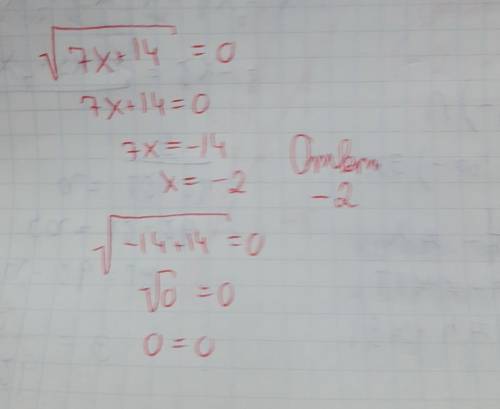 √7x+14 = 0
7x+14=0
7x=-14
x = -2
Ответ
-2
√-14+14 = 0
√0 = 0
0 = 0